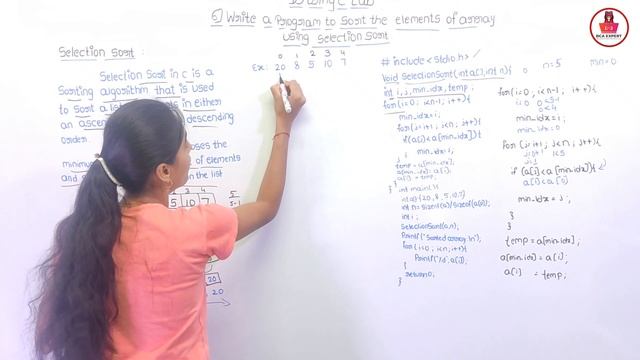 using C Lab
6) Write a Program to Sort the elements of array
using Selection Sort
Selection Sort :
Selection Sort in C is a
Sorting algorithm that is used
to Sort a
in either
an
descending
order.
oses the
minimu
of elements
and
in the list
3 4
5 10 7
5
20
20
0 1 2 3 4
Ex: 20 8 5 10 7
# include <stdio.h>
Void SelectionSort(int a[], int n){
int i, j, min_idx, temp;
for(i=0; i<n-1; i++){
min_idx = i;
for(j=i+1; j<n; j++)
if(a[j]<a[min_idx]){
min_idx = j;
}
temp = a[min_idx];
a[min_idx] = a[i];
a[i] = temp;
}
int main(){
int a[]={20, 8, 5, 10, 7};
int n = sizeof(a)/sizeof(a[0]);
int i;
SelectionSort(a,n);
Printf("Sorted array: \n");
for(i=0; i<n; i++){
Printf("%d", a[i]);
}
return 0;
}
n=5
min=0
for(i=0; i<n-1; i++){
i=0 0<5-1
0<4
min_idx = i;
min_idx = 0
for(j=i+1; j<n; j++){
1<5
if (a[j]<a[min_idx]){
min_idx = j;
}
}
temp = a[min_idx];
a[min_idx] = a[i];
a[i] = temp;
BCA EXPERT